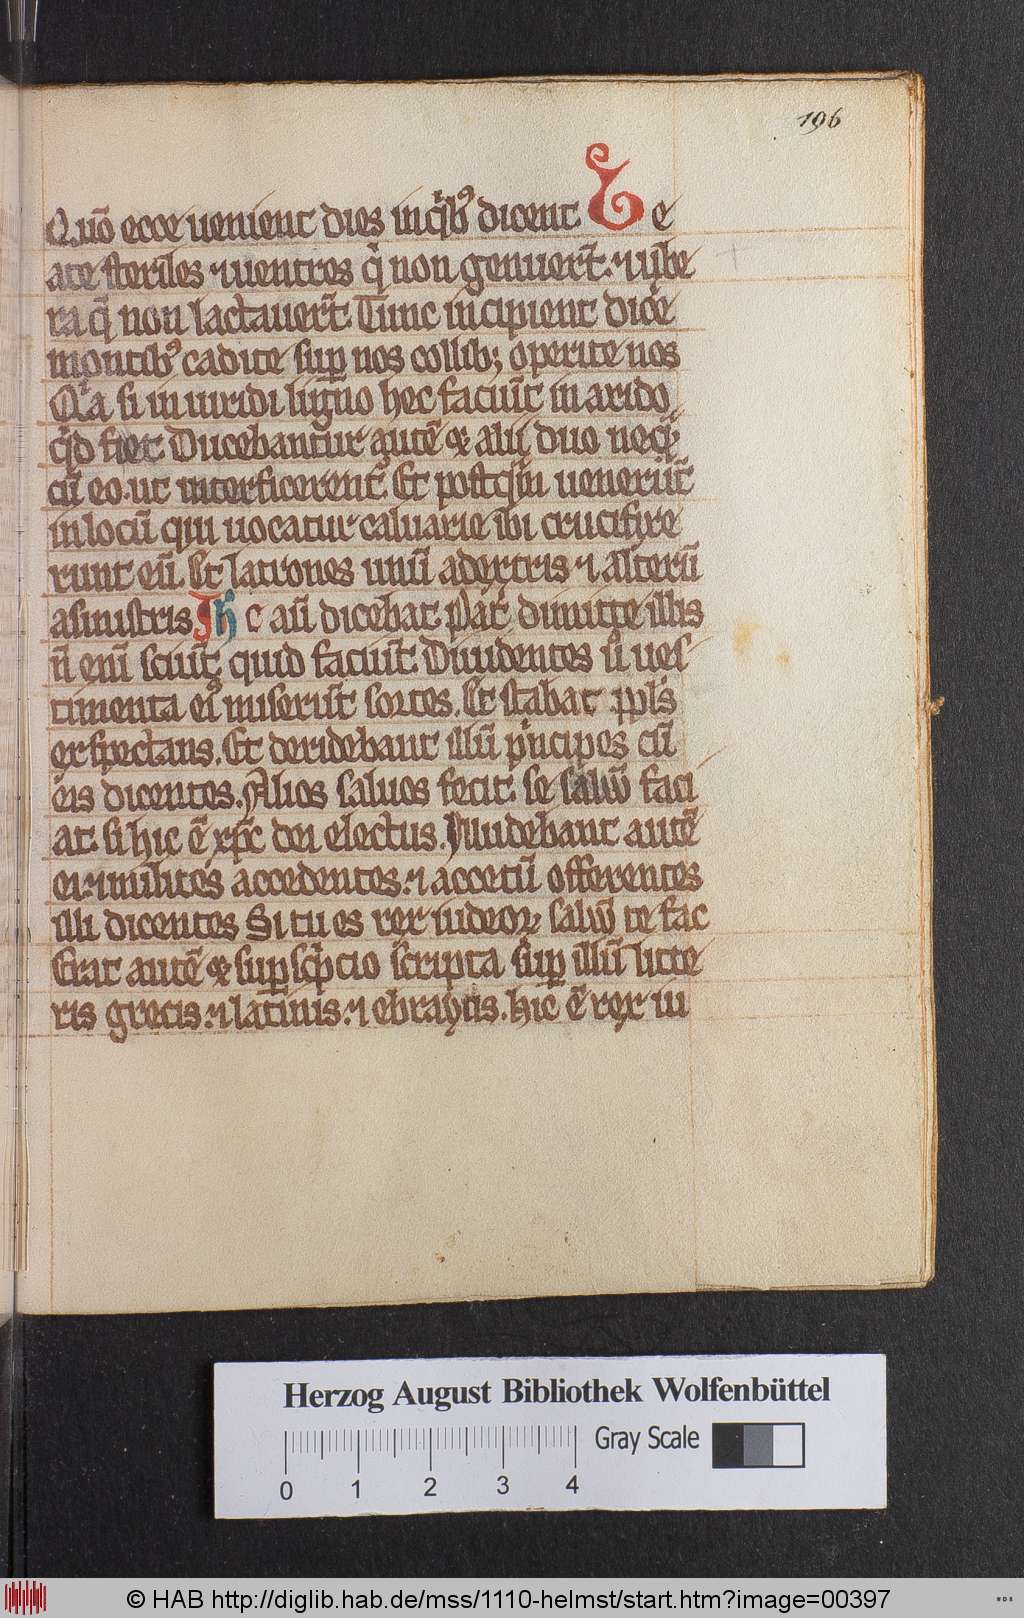 196
Quō ecce uenient dies in qͥbꝰ dicent Be
ate steriles ⁊ uentres q̇ non genuer̄t. ⁊ vbe
ra q̄ non lactauer̄t. Tunc incipient dice᷑
montibꝰ cadite suꝑ nos collibꝫ operite nos
Qͥa si in uiridi ligno hec faciūt in arido
qͥd fiet. Ducebantur autē & alij duo neqͣꝫ
cū eo. ut interficerent᷑. Et postqͣm uenerūt
in locū qui uocatur caluarie ibi crucifixe
runt eū. Et latrones unū adextris ⁊ alterū
asinistris Ih̄c aū dicebat. Pat᷑ dimitte illis
n̄ enī sciūt quid faciūt. Diuidentes ů ues
timenta eiꝰ miserūt sortes. Et stabat ppl̄s
exspectans. Et deridebant illū pͥncipes cū
eis dicentes. Alios saluos fecit. se saluū faci
at. si hic ē xp̄c dei electus. Illudebant autē
ei ⁊ milites accedentes. ⁊ accetū offerentes
illi dicentes Si tu es rex iudeoꝝ saluū te fac
Erat autē & suꝑscͥptio scripta suꝑ illū litte
ris grecis. ⁊ latinis. ⁊ ebraycis. hic ē rex iu
Herzog August Bibliothek Wolfenbüttel
0 1 2 3 4 Gray Scale
© HAB http://diglib.hab.de/mss/1110-helmst/start.htm?image=00397